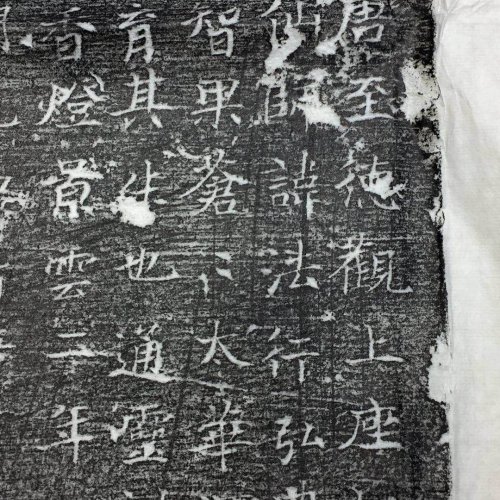 唐至德觀上座
仙師諱法行弘
智果蒼下太華
育其生也通靈
香燈景雲二年